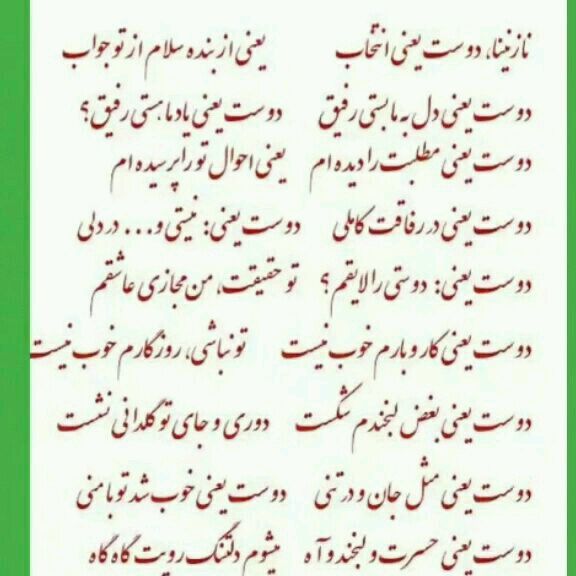 نازنینا، دوست یعنی انتخاب یعنی از بنده سلام از تو جواب
دوست یعنی دل به ما بستی رفیق دوست یعنی یاد ما هستی رفیق؟
دوست یعنی مطلبت را دیده ام یعنی احوال تو را پرسیده ام
دوست یعنی در رفاقت کاملی دوست یعنی: نیستی و... در دلی
دوست یعنی: دوستی را لایقم؟ تو حقیقت، من مجازی عاشقم
دوست یعنی کار و بارم خوب نیست تو نباشی، روزگارم خوب نیست
دوست یعنی بغض لبخندم شکست دوری و جای تو گلدانی نشست
دوست یعنی مثل جان و در تنی دوست یعنی خوب شد تو با منی
دوست یعنی حسرت و لبخند و آه میشوم دلتنگ رویت گاه گاه